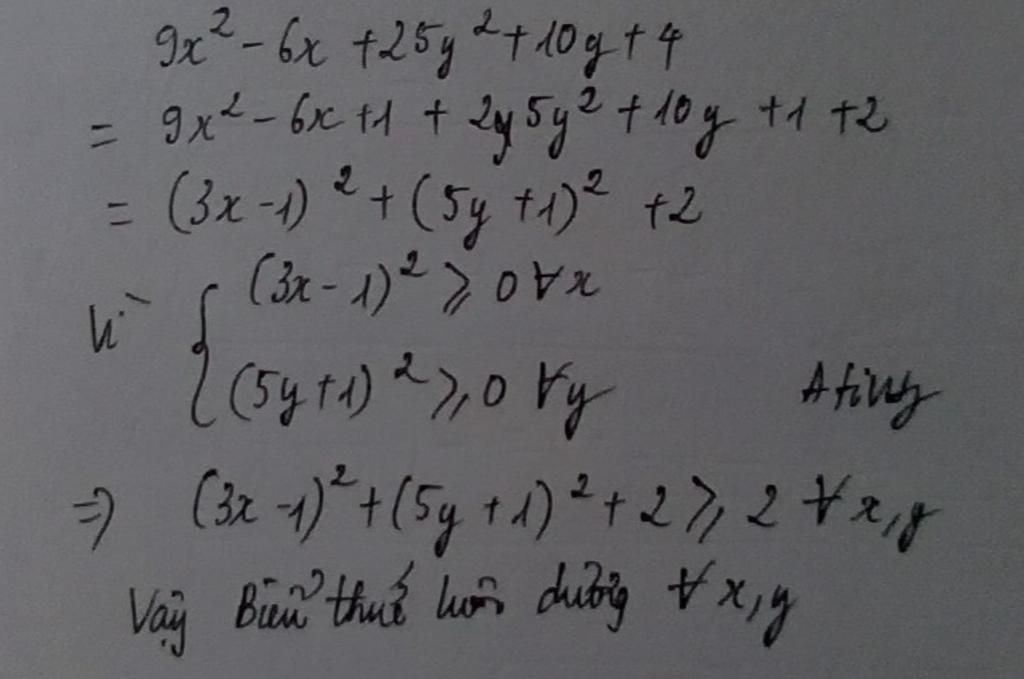 9x² - 6x + 25y² + 10y + 4
= 9x² - 6x + 1 + 2y5y² + 10y + 1 + 2
= (3x - 1)² + (5y + 1)² + 2
Vì { (3x - 1)² ⩾ 0 ∀x
(5y + 1)² ⩾ 0 ∀y
=> (3x - 1)² + (5y + 1)² + 2 ⩾ 2 ∀x,y
Vậy Biểu thức luôn dương ∀x,y